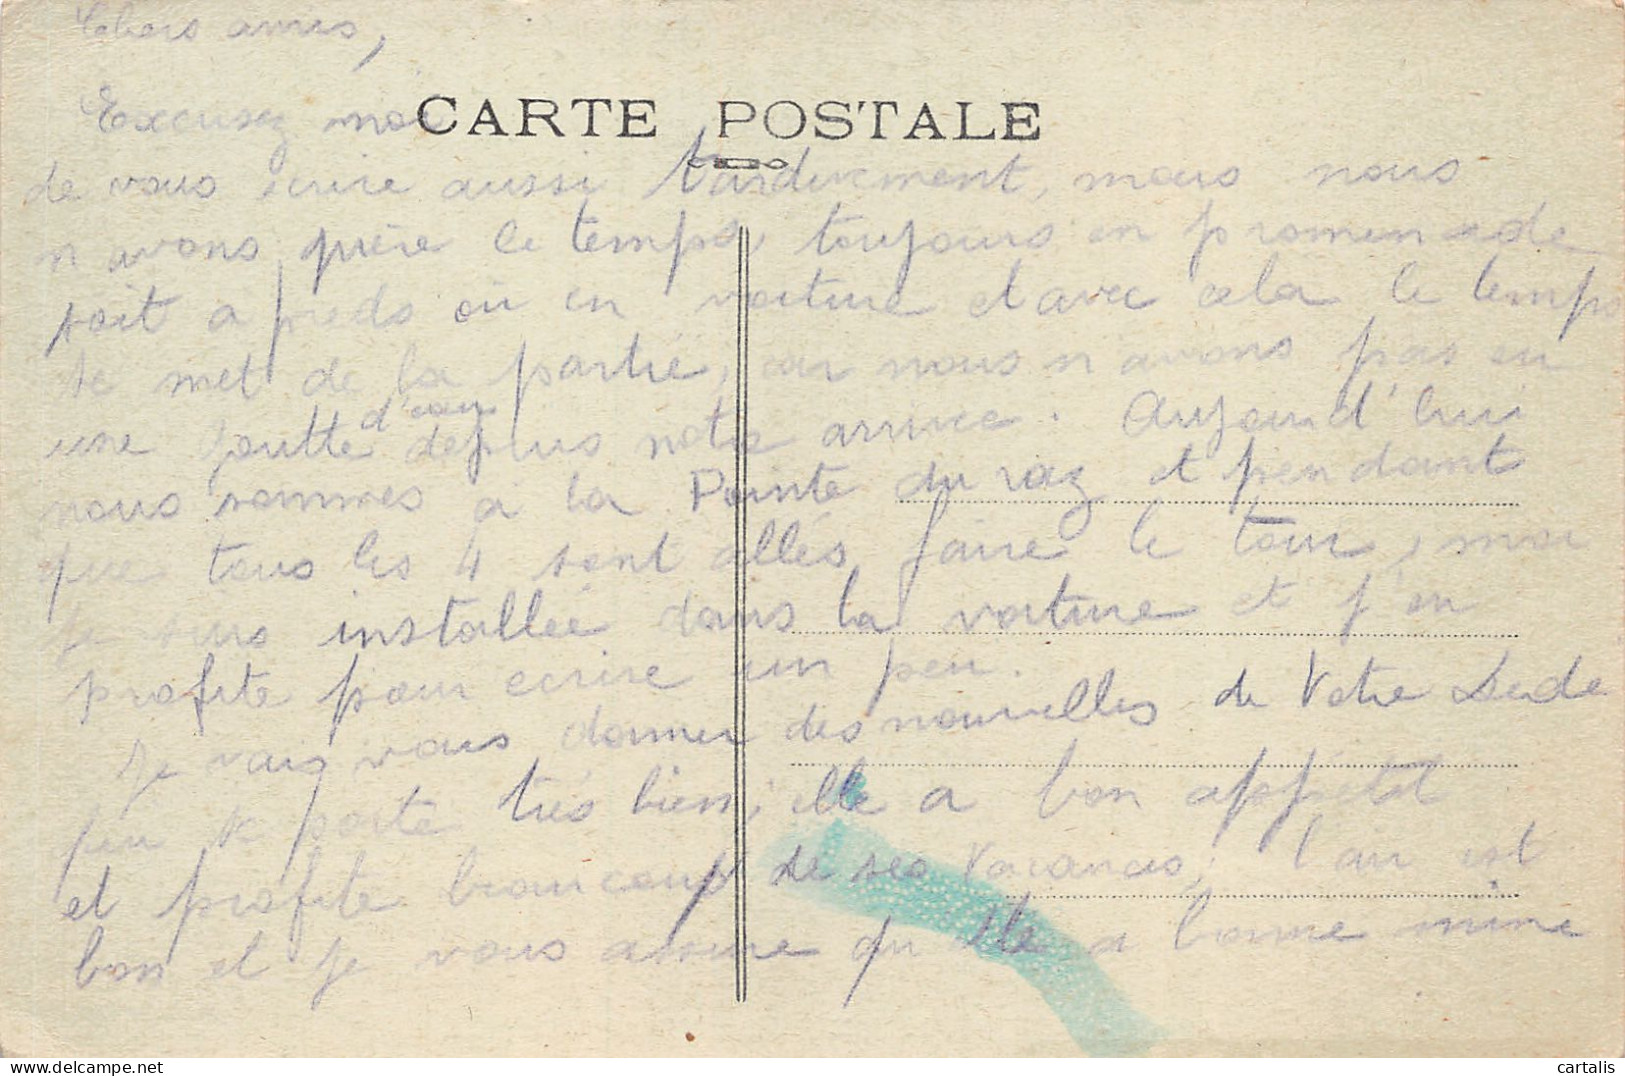 Chers amis,
CARTE POSTALE
Excusez moi
de vous écrire aussi tardivement, mais nous
n'avons guère le temps, toujours en promenade
soit a pieds ou en voiture et avec cela le temps
se met de la partie, car nous n'avons pas eu
une goutte d'eau depuis notre arrivée. Aujourd'hui
nous sommes à la Pointe du raz et pendant
que tous les 4 sont allés faire le tour, moi
je suis installée dans la voiture et j'en
profite pour ecrire un peu.
Je vais vous donner des nouvelles de Votre Dede
qui se porte très bien, elle a bon appétit
et profite beaucoup de ses Vacances, l'air est
bon et je vous assure qu'elle a bonne mine
cartalis